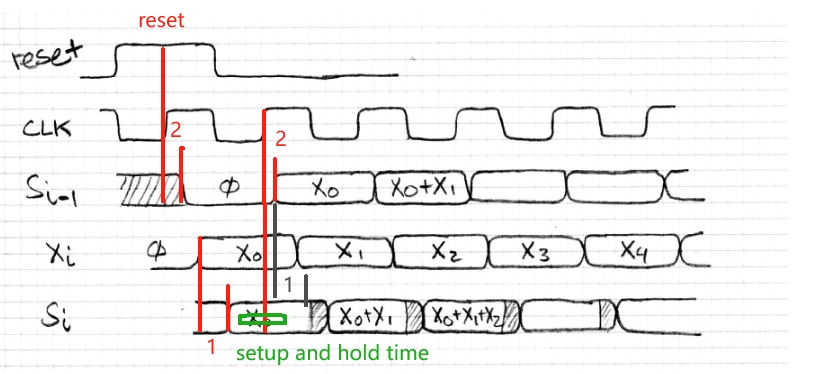 reset
reset
CLK
2
2
Si-1
φ
X0
X0+X1
Xi
φ
X0
X1
X2
X3
X4
1
Si
X0
X0+X1
X0+X1+X2
1
setup and hold time